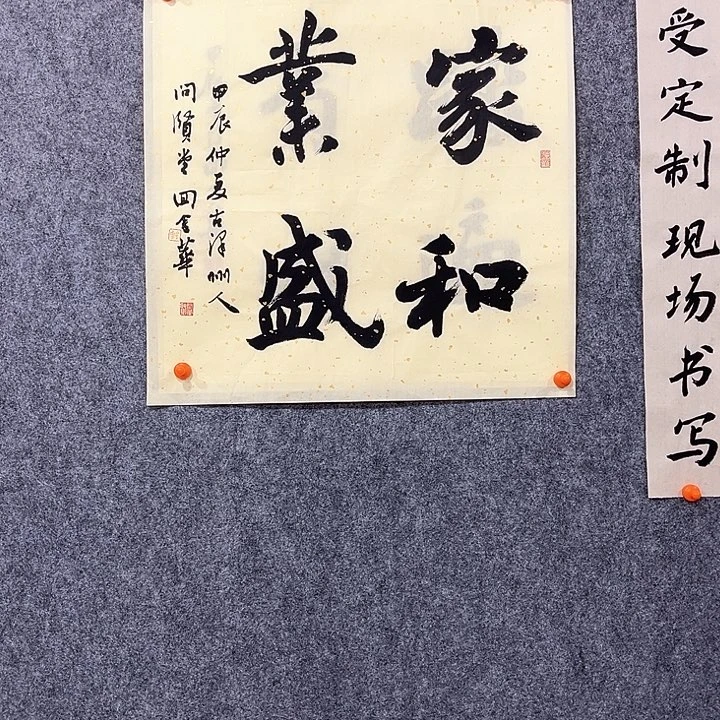 受定制现场书写
家和
業盛
甲辰仲夏古泽州人
问賢堂
華